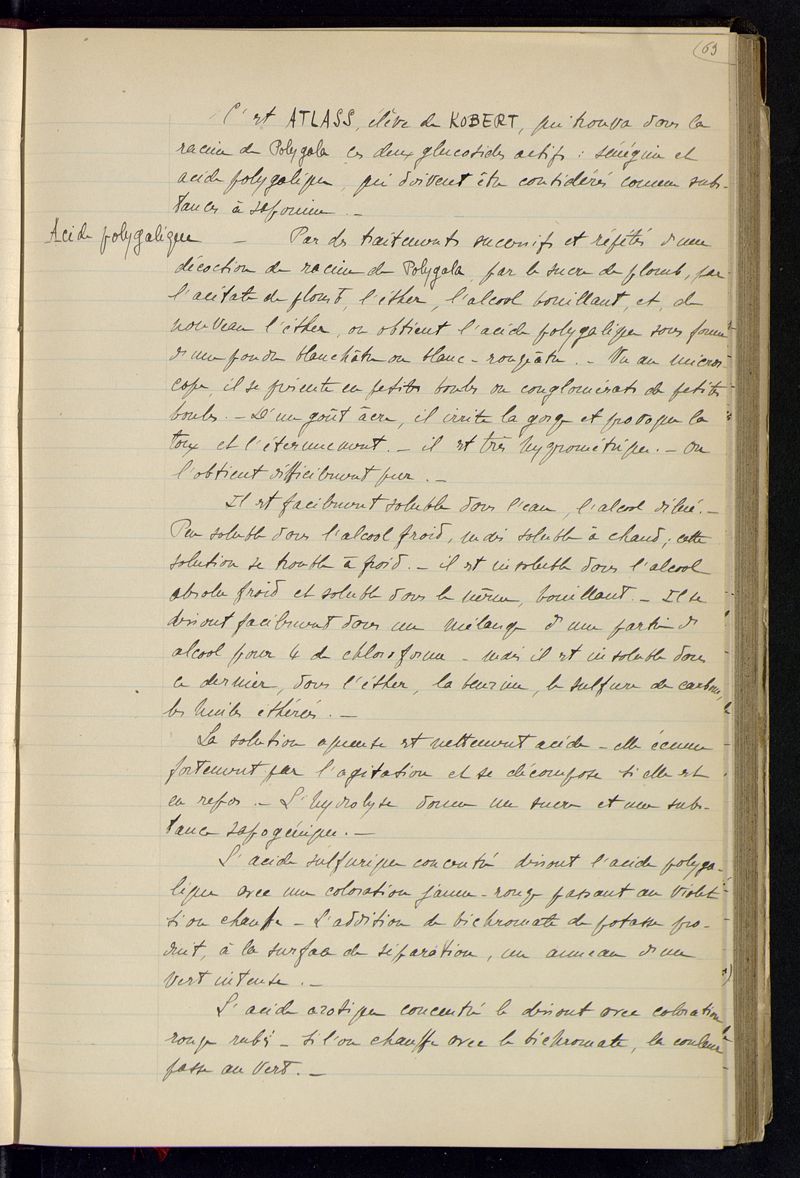 63
C'est ATLASS, élève de KOBERT, qui trouva dans la
racine de Polygala ces deux glucosides actifs : sénéguine et
acide polygalique, qui doivent être considérés comme subs-
tances à saponine. —
Acide polygalique — Par des traitements successifs et répétés d'une
décoction de racine de Polygala, par le sucre de plomb, par
l'acétate de plomb, l'éther, l'alcool bouillant, et, de
nouveau l'éther, on obtient l'acide polygalique sous forme
d'une poudre blanchâtre ou blanc-rougeâtre. — Vu au micros-
cope il se présente en petites boules ou conglomérats de petites
boules. — D'un goût âcre, il irrite la gorge et provoque la
toux et l'éternuement. — il est très hygrométrique. — On
l'obtient difficilement pur. —
Il est facilement soluble dans l'eau, l'alcool dilué. —
Peu soluble dans l'alcool froid, mais soluble à chaud ; cette
solution se trouble à froid. — il est insoluble dans l'alcool
absolu froid et soluble dans le même, bouillant. — Il se
dissout facilement dans un mélange d'une partie d'
alcool pour 4 de chloroforme — mais il est insoluble dans
ce dernier, dans l'éther, la benzine, le sulfure de carbone,
les huiles éthérées. —
La solution aqueuse est nettement acide — elle écume
fortement par l'agitation et se décompose si elle est
en repos. — L'hydrolyse donne un sucre et une subs-
tance sapogénique. —
L'acide sulfurique concentré dissout l'acide polyga-
lique avec une coloration jaune-rouge passant au violet
si on chauffe — L'addition de bichromate de potasse pro-
duit, à la surface de séparation, un anneau d'un
vert intense. —
L'acide azotique concentré le dissout avec coloration
rouge rubis — si l'on chauffe avec le bichromate, la couleur
passe au vert. —